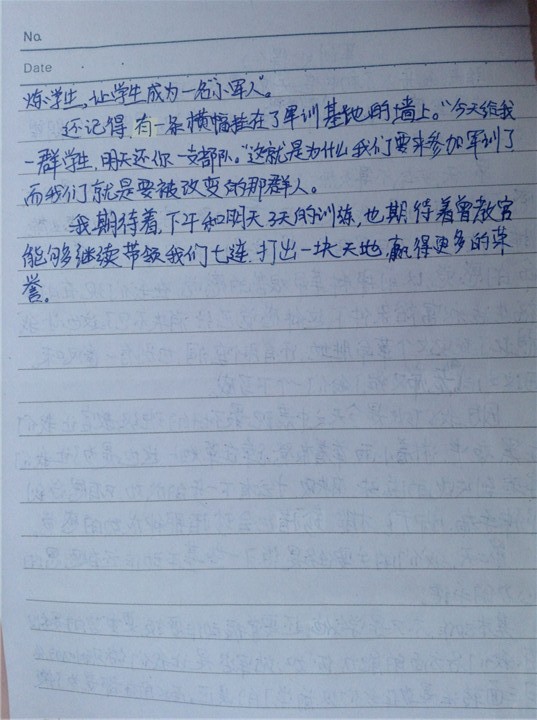 No.
Date
炼学生,让学生成为一名“小军人”。
还记得,有一条横幅挂在了军训基地的墙上。“今天给我
一群学生,明天还你一支部队。”这就是为什么我们要来参加军训了
而我们就是要被改变的那群人。
我期待着,下午和明天3天的训练,也期待着曾教官
能够继续带领我们七连,打出一块天地,赢得更多的荣
誉。